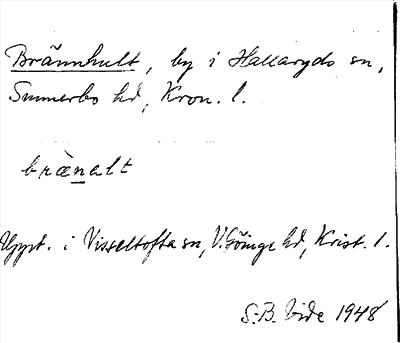 Brännhult, by i Hallaryds sn,
Sunnerbo hd, Kron. l.
brænalt
Uppt. i Visseltofta sn, V. Göinge hd, Krist. l.
S.B. Vide 1948